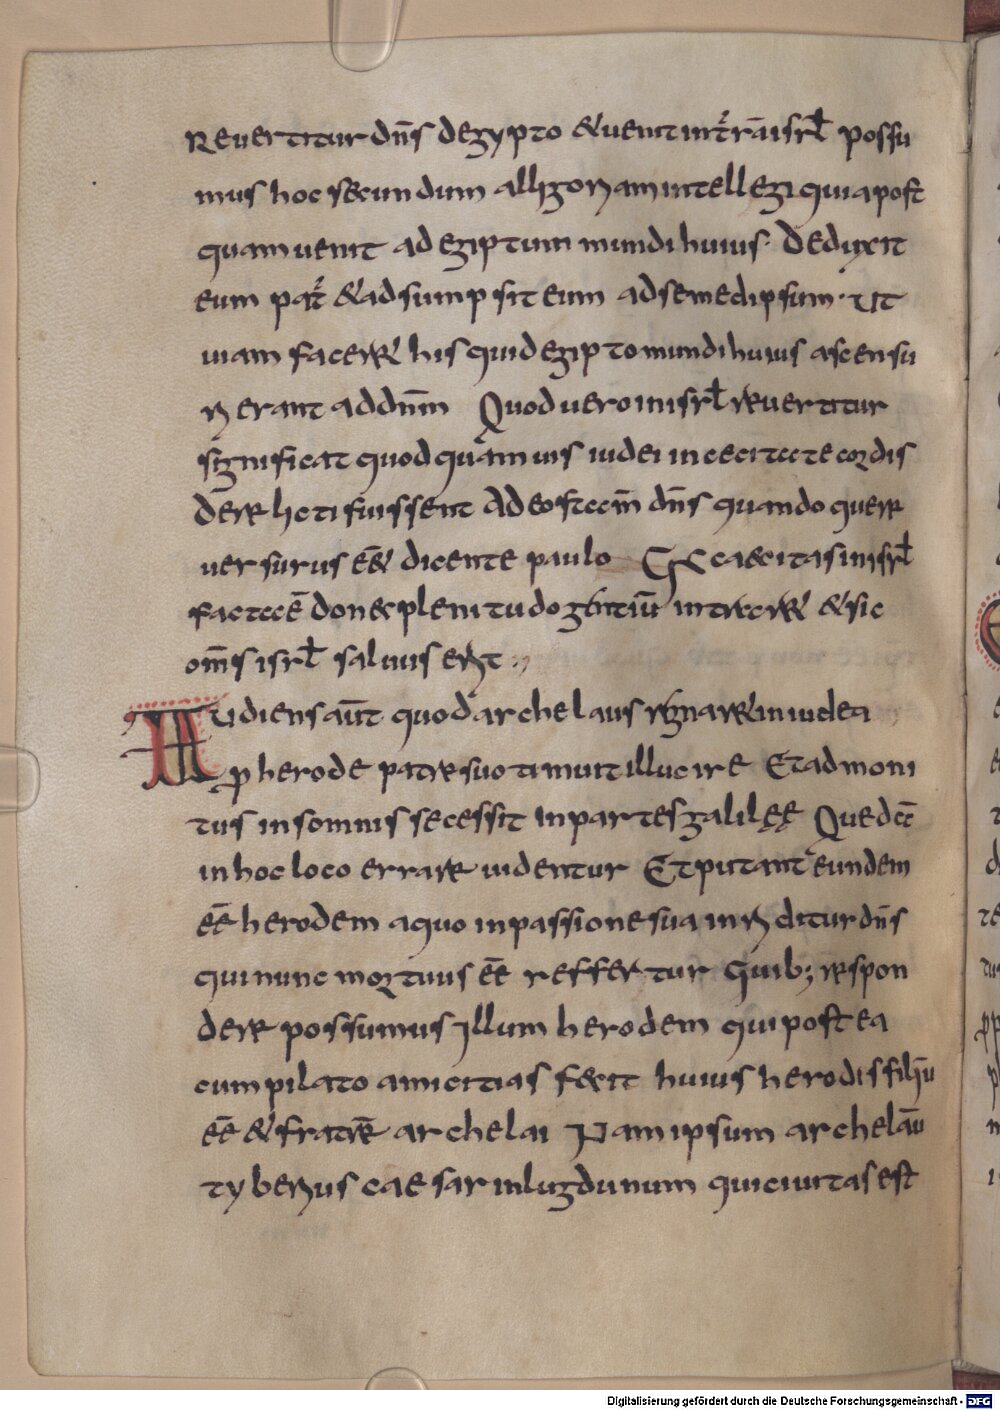 Revertitur dn̄s degypto &uenit int̄rāisrl̄ possu
mus hoc s&cundum alligoriam intellegi quia post
quam uenit ad egiptum mundi huius· Deduxit
eum pat̄ &adsumpsit eum ad semedipsum· Ut
uiam facer& his quid egipto mundi huius ascensu
ri erant ad dn̄m Quod uero in isrl̄ reuertitur
significat quod quamuis iudei in cecitate cordis
derelicti fuissent Ad eos tam̄ dn̄s quandoque re
uersurus eē& dicente paulo Ex caecitas in isrl̄
facta ē donec plenitudo gentiū intrar& &sic
om̄s isrl̄ saluus erit
Audiens aut̄ quod archelaus regnar& in iudea
p̱ herode patre suo timuit illuc ire Et admoni
tus in somnis secessit in partes galilęę Quedā
in hoc loco errare uidentur Et putant eundem
eē herodem a quo in passione sua inriditur dn̄s
qui nunc mortuus eē reffertur Quib; respon
dere possumus Illum herodem qui postea
cum pilato amicitias fecit huius herodis filiū
eē &fratrē archelai Nam ipsum archelāu
tyberius caesar in lugdunum quiciuitas est
Digitalisierung gefördert durch die Deutsche Forschungsgemeinschaft - DFG